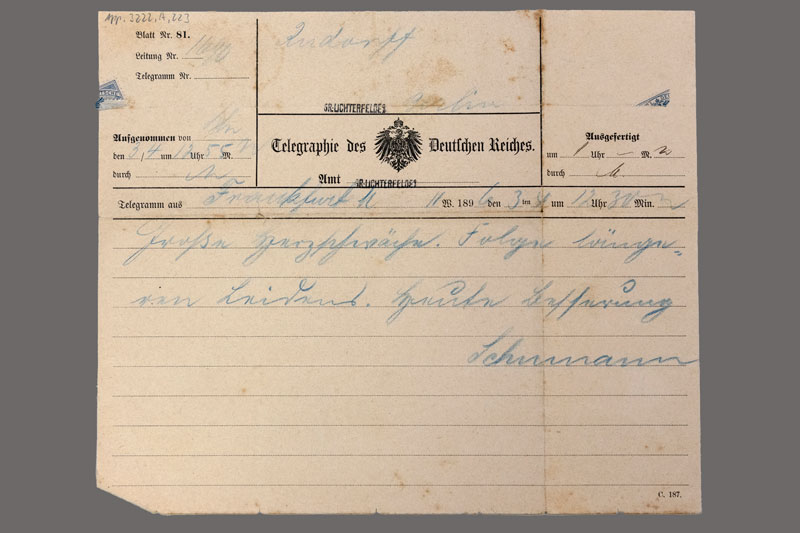 App. 3222, A, 223
Blatt Nr. 81.
Leitung Nr.
Telegramm Nr.
Rudorff
GR.LICHTERFELDE
Berlin
Aufgenommen von
den 3/4 um 12 Uhr 55 M.
durch
Telegraphie des Deutschen Reiches.
Amt GR.LICHTERFELDE
Ausgefertigt
um 1 Uhr — M.
durch
Telegramm aus Frankfurt M 11 W. 1896 den 3 ten 4 um 12 Uhr 30 Min.
Große Herzschwäche. Folge länge-
ren Leidens. Heute Besserung
Schumann
C. 187.